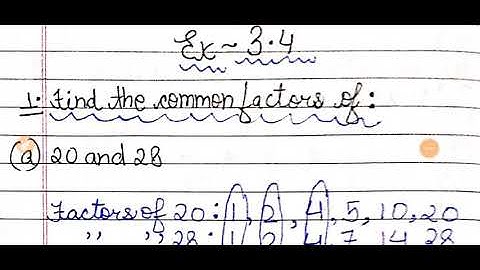 Ex ~ 3.4
1. Find the common factors of :
(a) 20 and 28
Factors of 20 : 1, 2, 4, 5, 10, 20
,, ,, 28 : 1, 2, 4, 7, 14, 28